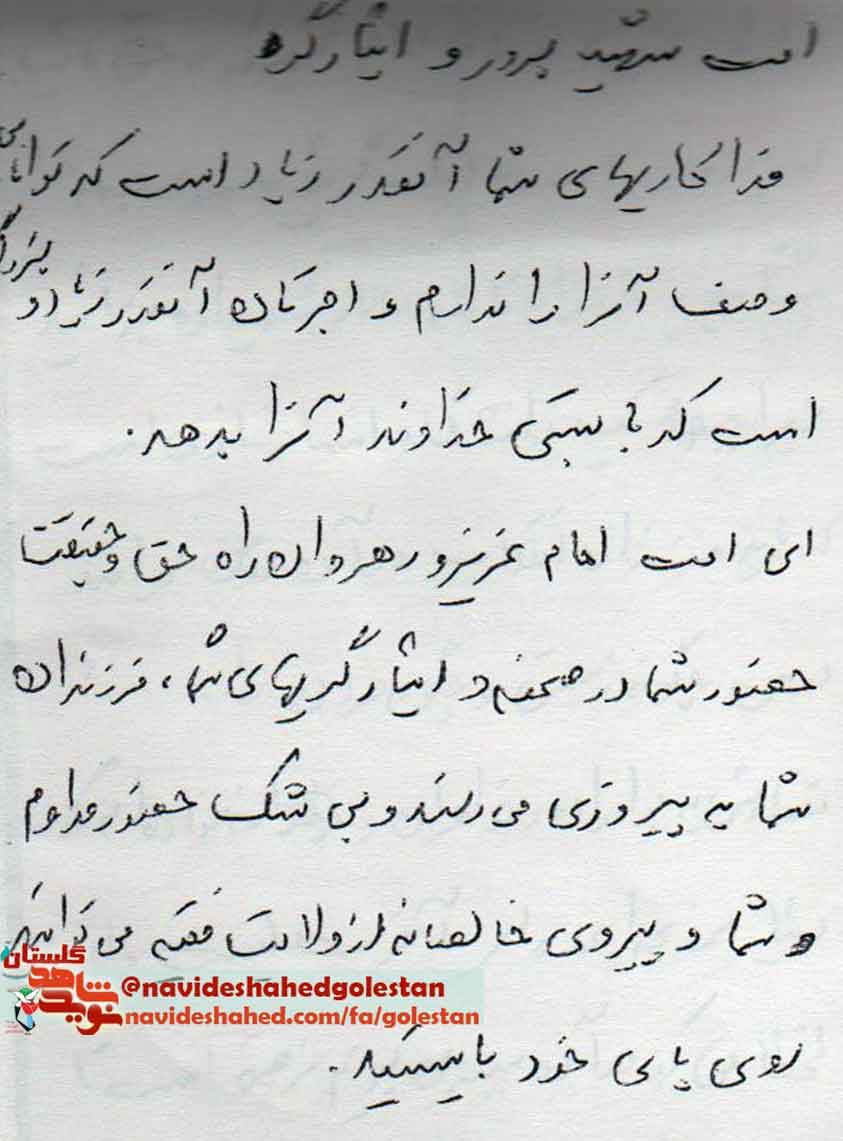 امت شهید پرور و ایثارگر
فداکاریهای شما آنقدر زیاد است که توانایی
وصف آنرا را ندارم و اجرتان آنقدر زیاد و بزرگ
است که بایستی خداوند آنرا بدهد.
ای امت امام عزیز و رهروان راه حق و حقیقت
حضور شما در صحنه و ایثارگریهای شما، فرزندان
شما به پیروزی می رسند و بی شک حضور مداوم
شما و پیروی خالصانه از ولایت فقیه می توانید
روی پای خود بایستید.
گلستان
نوید شاهد
@navideshahedgolestan
navideshahed.com/fa/golestan